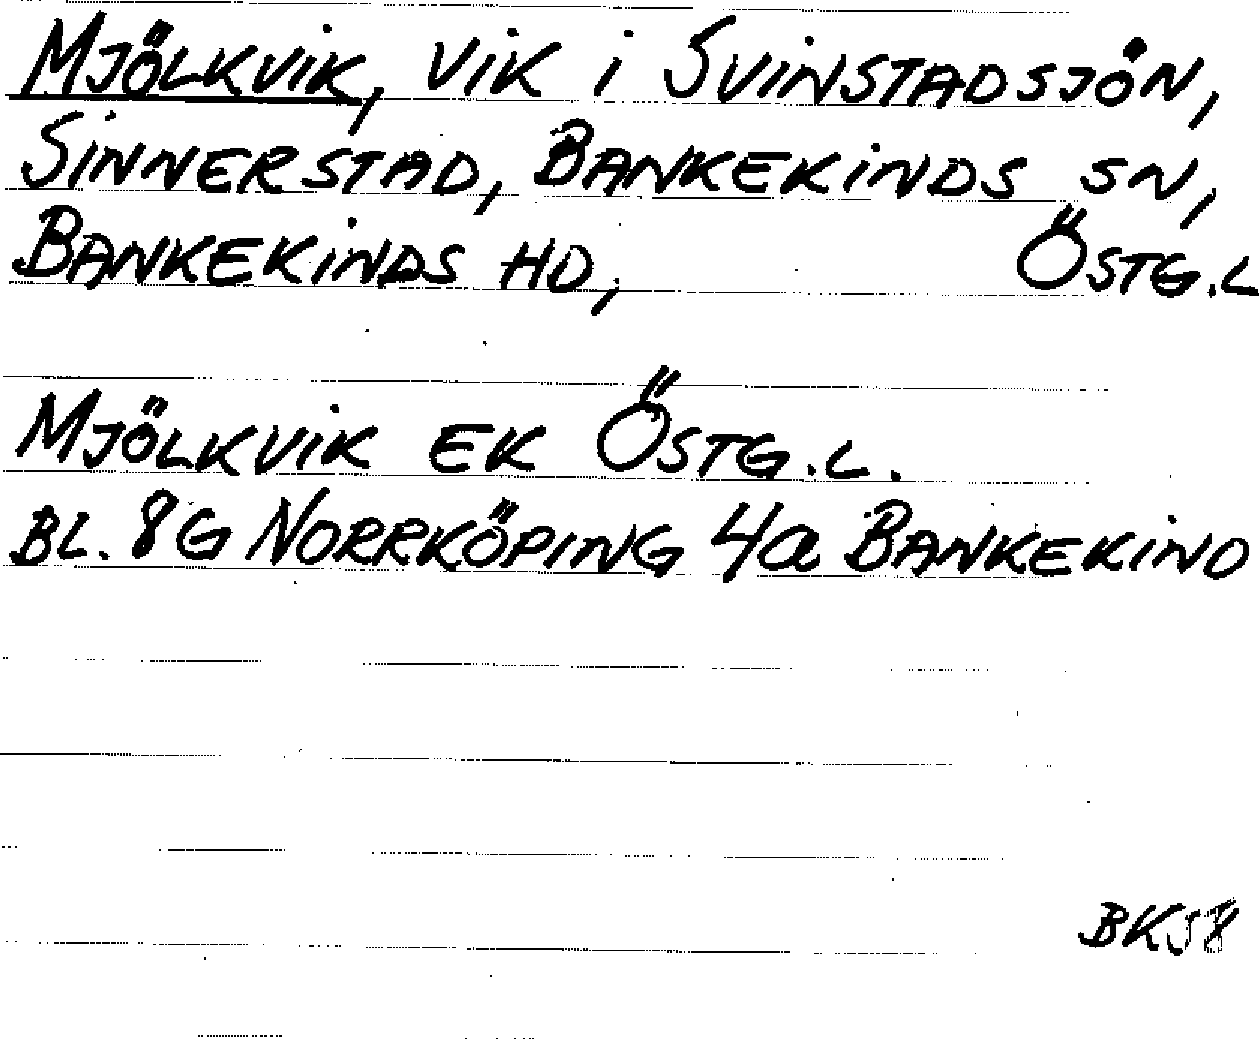 MJÖLKVIK, VIK I SVINSTADSJÖN,
SINNERSTAD, BANKEKINDS SN,
BANKEKINDS HD, ÖSTG.L
MJÖLKVIK EK ÖSTG.L.
BL. 8G NORRKÖPING 4a BANKEKIND